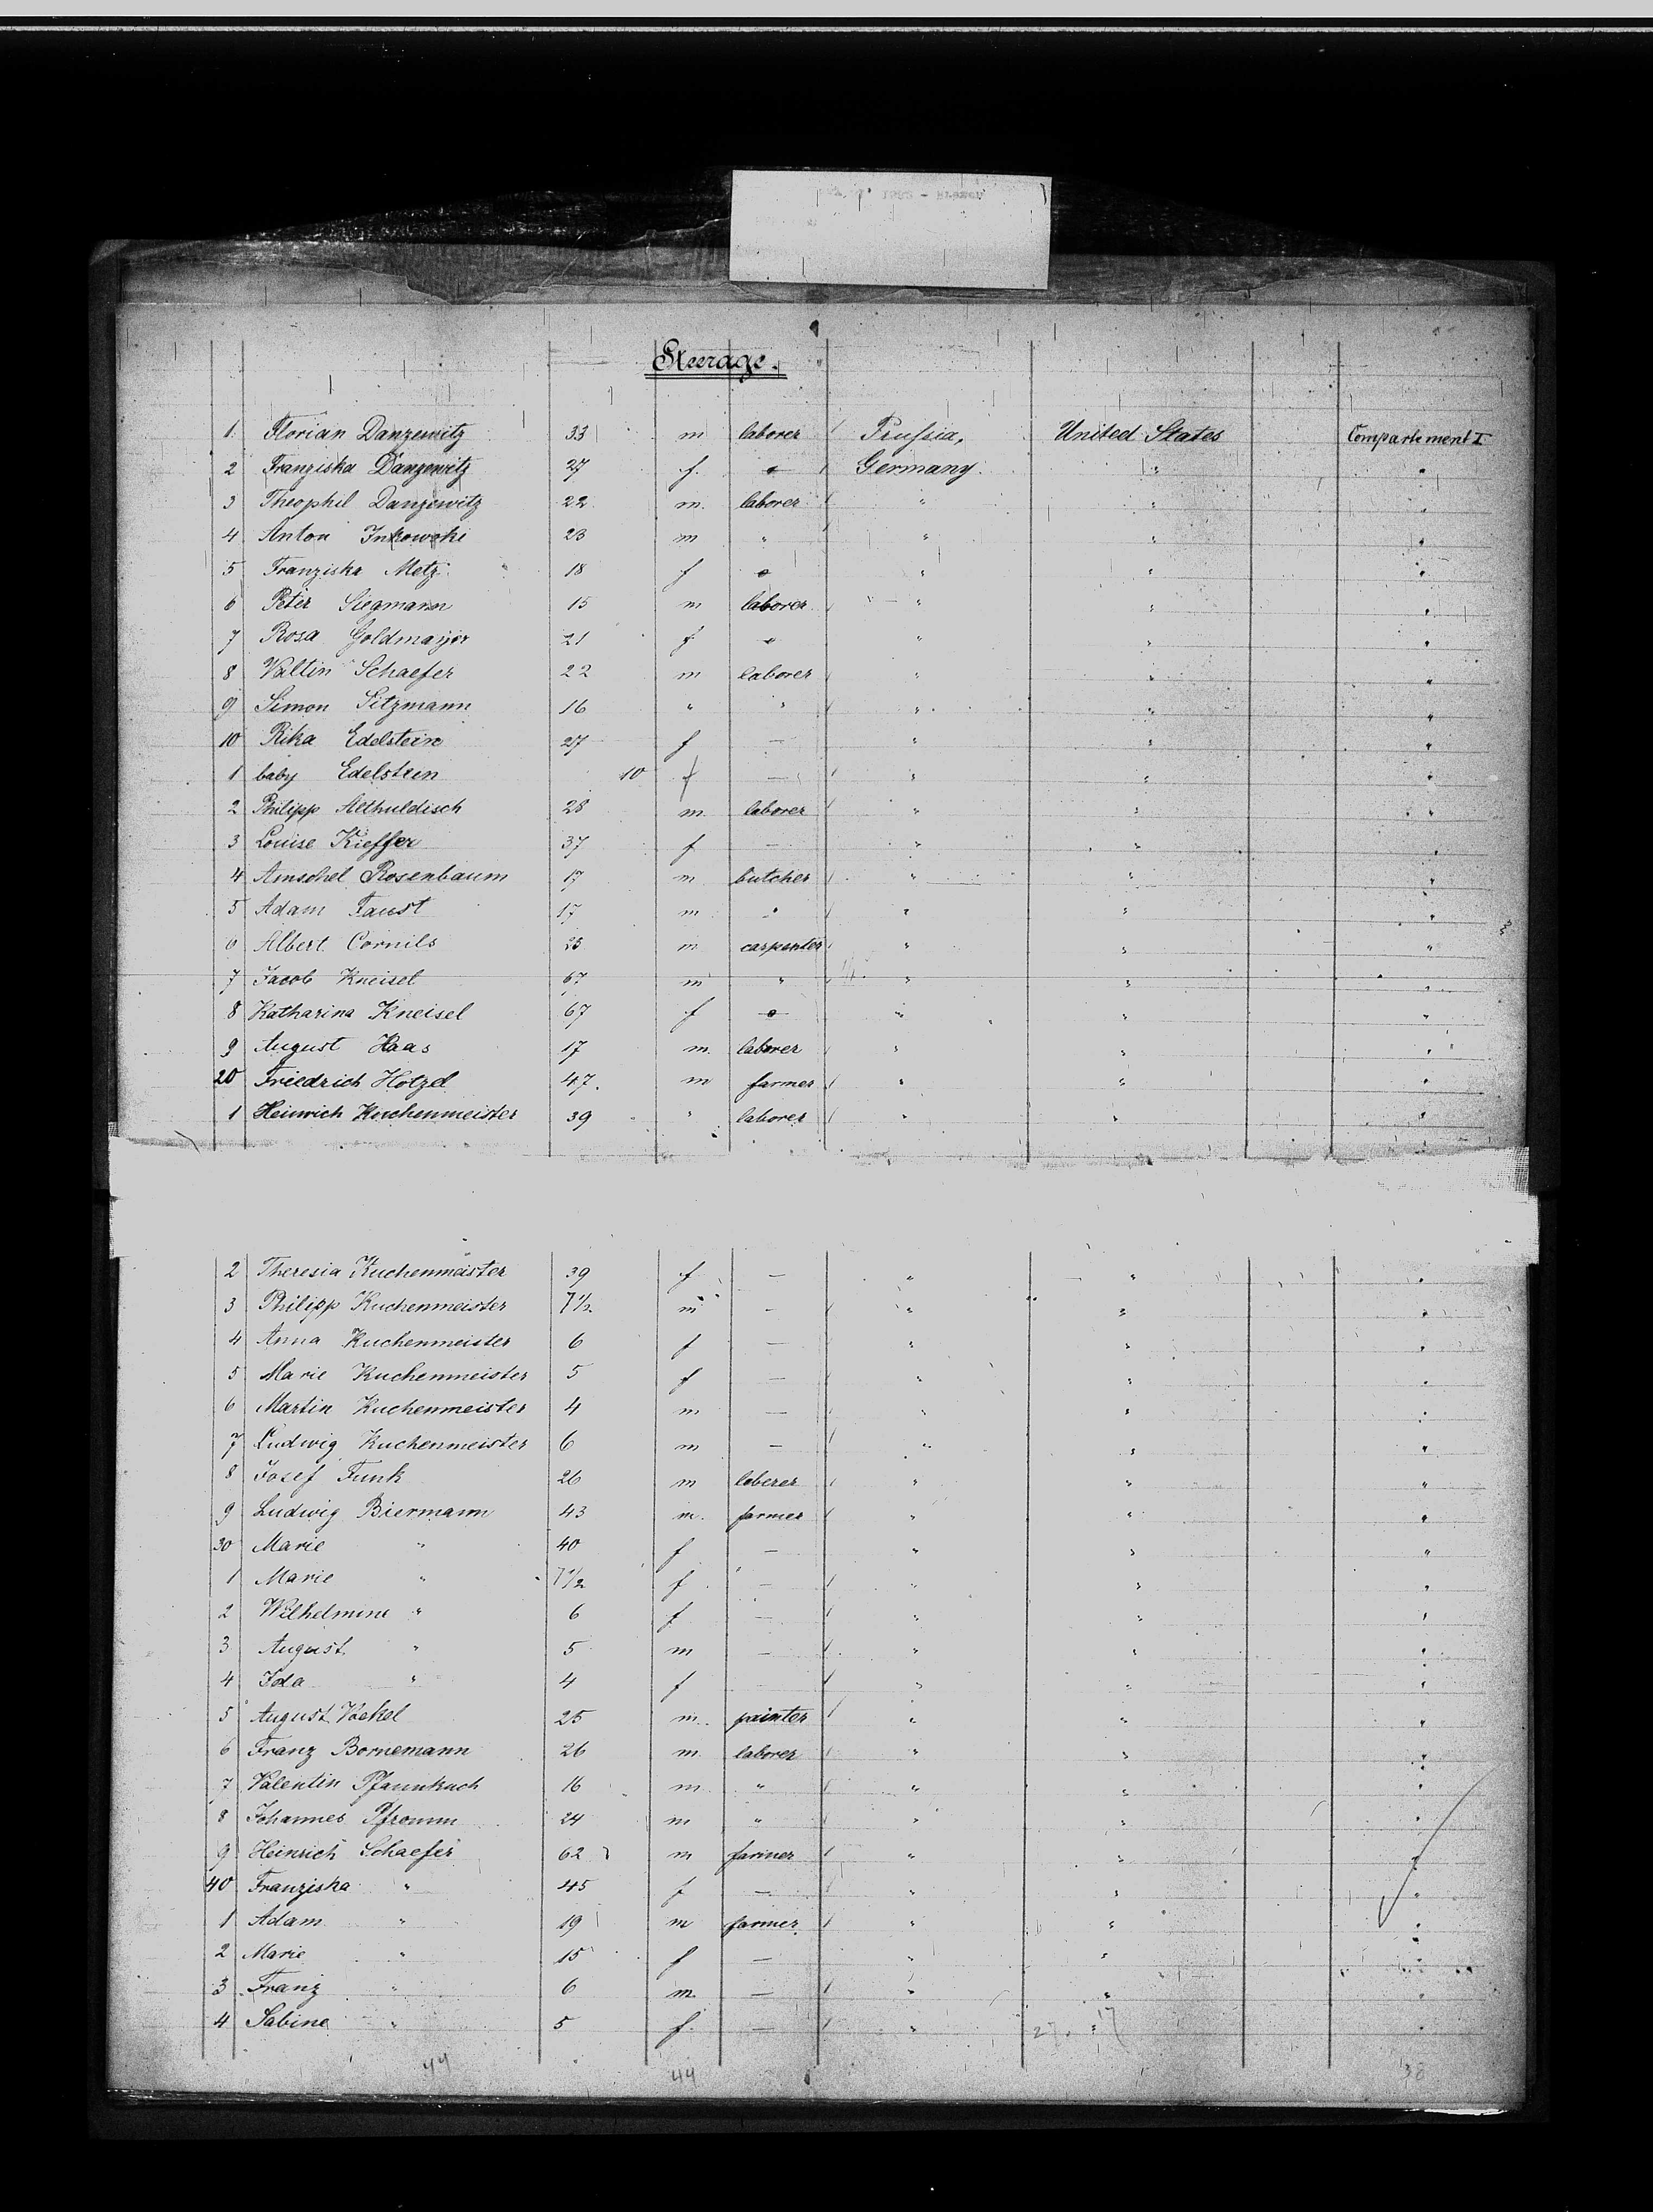 Steerage.
1 Florian Danzewitz 33 m laborer Prussia, United States Compartement I
2 Franziska Danzewitz 27 f. o Germany. " "
3 Theophil Danzewitz 22 m. laborer " " "
4 Anton Inkowski 23 m " " " "
5 Franziska Metz 18 f o " " "
6 Peter Siegmann 15 m laborer " " "
7 Rosa Goldmayer 21 f o " " "
8 Valtin Schaefer 22 m laborer " " "
9 Simon Sitzmann 16 " " " " "
10 Rika Edelstein 27 f — " " "
1 baby Edelstein 10 f — " " "
2 Philipp 28 m. laborer " " "
3 Louise Kieffer 37 f — " " "
4 Amschel Rosenbaum 17 m butcher " " "
5 Adam Faust 17 m " " " "
6 Albert Cornils 23 m carpenter " " "
7 Jacob Kneisel 67 m " " " "
8 Katharina Kneisel 67 f o " " "
9 August Haas 17 m. laborer " " "
20 Friedrich Hotzel 47. m farmer " " "
1 Heinrich Kuchenmeister 39 " laborer " " "
2 Theresia Kuchenmeister 39 f — " " "
3 Philipp Kuchenmeister 7½ m — " " "
4 Anna Kuchenmeister 6 f — " " "
5 Marie Kuchenmeister 5 f — " " "
6 Martin Kuchenmeister 4 m — " " "
7 Ludwig Kuchenmeister 6 m — " " "
8 Josef Funk 26 m loberer " " "
9 Ludwig Biermann 43 m. farmer " " "
30 Marie " 40 f — " " "
1 Marie " 7½ f — " " "
2 Wilhelmine " 6 f — " " "
3 August " 5 m — " " "
4 Ida " 4 f " " "
5 August Vockel 25 m. painter " " "
6 Franz Bornemann 26 m laborer " " "
7 Valentin Pfannkuch 16 m " " " "
8 Johannes Pfromm 24 m " " " "
9 Heinrich Schaefer 62 m farmer " " "
40 Franziska " 45 f — " " "
1 Adam " 19 m farmer " " "
2 Marie " 15 f — " " "
3 Franz " 6 m — " " "
4 Sabine " 5 f. — " 27. " 17 "
44 44 38